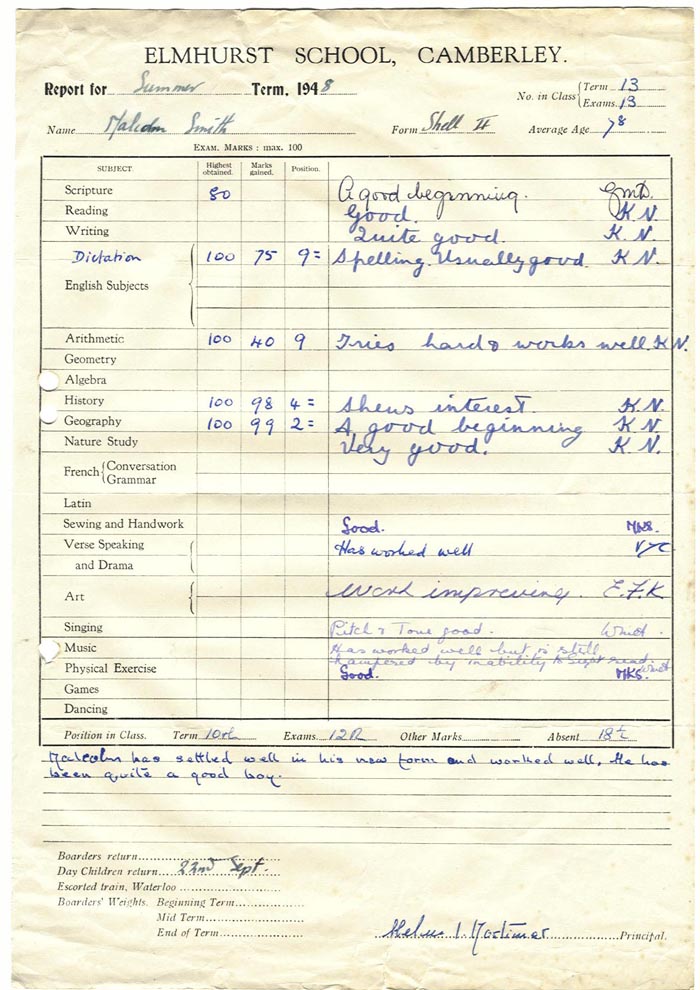 ELMHURST SCHOOL, CAMBERLEY.
Report for Summer Term, 1948
No. in Class { Term 13
Exams. 13
Name Malcolm Smith Form Shell II Average Age 7⁸
EXAM. MARKS : max. 100
SUBJECT. Highest obtained. Marks gained. Position.
Scripture 80 A good beginning.
Reading Good. K.N.
Writing Quite good. K.N.
Dictation 100 75 9= Spelling. Usually good. K.N.
English Subjects
Arithmetic 100 40 9 Tries hard & works well. K.N.
Geometry
Algebra
History 100 98 4= Shews interest. K.N.
Geography 100 99 2= A good beginning K.N.
Nature Study Very good. K.N.
French { Conversation
Grammar
Latin
Sewing and Handwork Good. MKS.
Verse Speaking Has worked well
and Drama
Art Work improving. E.F.K
Singing Pitch & Tone good.
Music Has worked well but is still
hampered by inability to read.
Physical Exercise Good. MKS.
Games
Dancing
Position in Class. Term 10th Exams. 12th Other Marks Absent 18½
Malcolm has settled well in his new form and worked well. He has
been quite a good boy.
Boarders return
Day Children return 22nd Sept.
Escorted train, Waterloo
Boarders' Weights. Beginning Term
Mid Term
End of Term
Mortimer Principal.